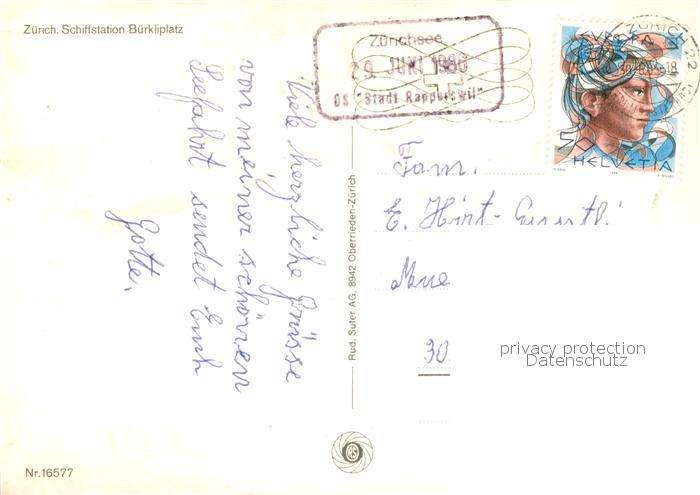 Zürich, Schiffstation Bürkliplatz
Viele herzliche Grüsse
von meiner schönen
Seefahrt sendet Euch
Gotte.
Rud. Suter AG, 8942 Oberrieden-Zürich
Zürichsee
29. JUNI 1986
DS "Stadt Rapperswil"
ZÜRICH
EUROPA
50
HELVETIA
Fam.
E. Hirt-
90
privacy protection
Datenschutz
Nr. 16577